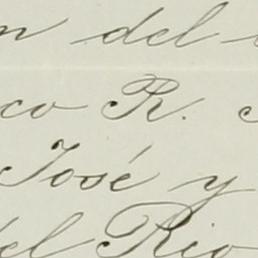 n del
co R.
José y
del Rio